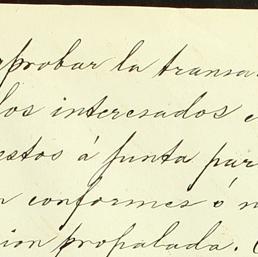 rprobar la transa
los interesados e
estos á junta par
n conformes ó n
ion propalada.